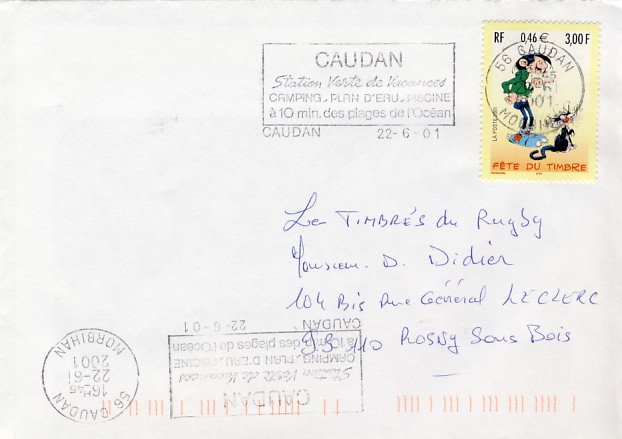 CAUDAN
Station Verte de Vacances
CAMPING_PLAN D'EAU_PISCINE
à 10 min. des plages de l'Océan
CAUDAN 22-6-01
RF 0,46 € 3,00 F
56 CAUDAN
MORBIHAN
LA POSTE
FÊTE DU TIMBRE
Les TIMBRÉS du Rugby
Monsieur D. Didier
104 Bis Rue Général LECLERC
93 110 ROSNY Sous Bois
CAUDAN 22-6-01
à 10 min. des plages de l'Océan
CAMPING_PLAN D'EAU_PISCINE
Station Verte de Vacances
CAUDAN
56 CAUDAN
16H45
22-6
2001
MORBIHAN